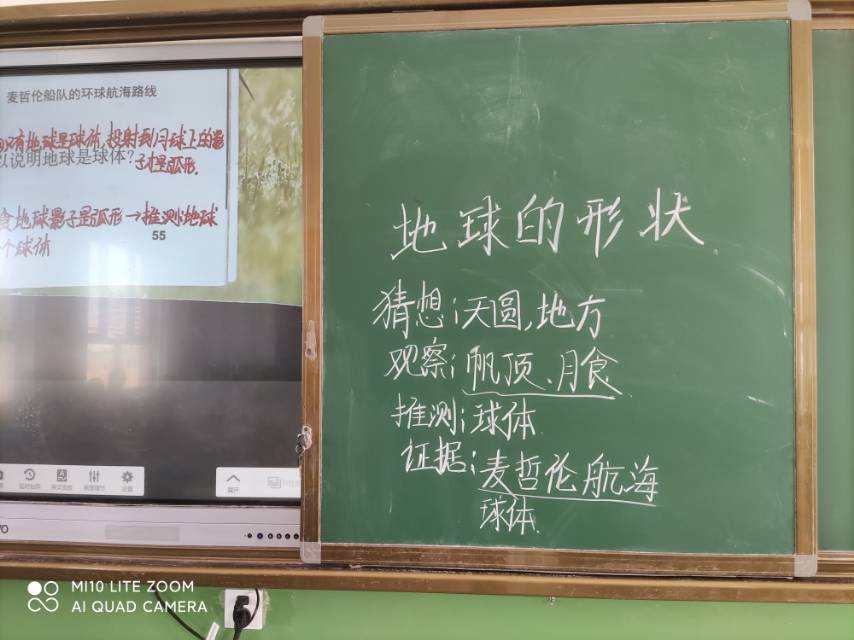 麦哲伦船队的环球航海路线
只有地球是球体,投射到月球上的影
以说明地球是球体?子才是弧形.
食地球影子是弧形→推测地球
个球体
55
地球的形状
猜想:天圆,地方
观察:帆顶、月食
推测:球体
证据:麦哲伦航海
球体
MI10 LITE ZOOM
AI QUAD CAMERA